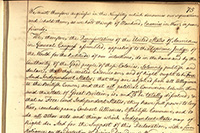 75
We must therefore acquiesce in the Necessity which denounces our separation
and hold them, as we hold the rest of Mankind, Enemies in War, in Peace
friends.
We therefore the Representatives of the United States of America
in General Congress assembled, appealing to the Supreme Judge of
the World for the Rectitude of our intentions, do in the name and by the
authority of the good people of these Colonies, Solemnly publish
and declare, that these united Colonies are, and of right ought to be Free
and Independent States; that they are
to the British Crown, and that all political
and the State of Great Britain is and ought to be totally
that as Free and Independent States, they have full power to levy
War, conclude peace, contract Alliances, establish Commerce, and
to do all other acts and things which Independent States may of
right do. And for the support of this Declaration, with a firm
reliance on the